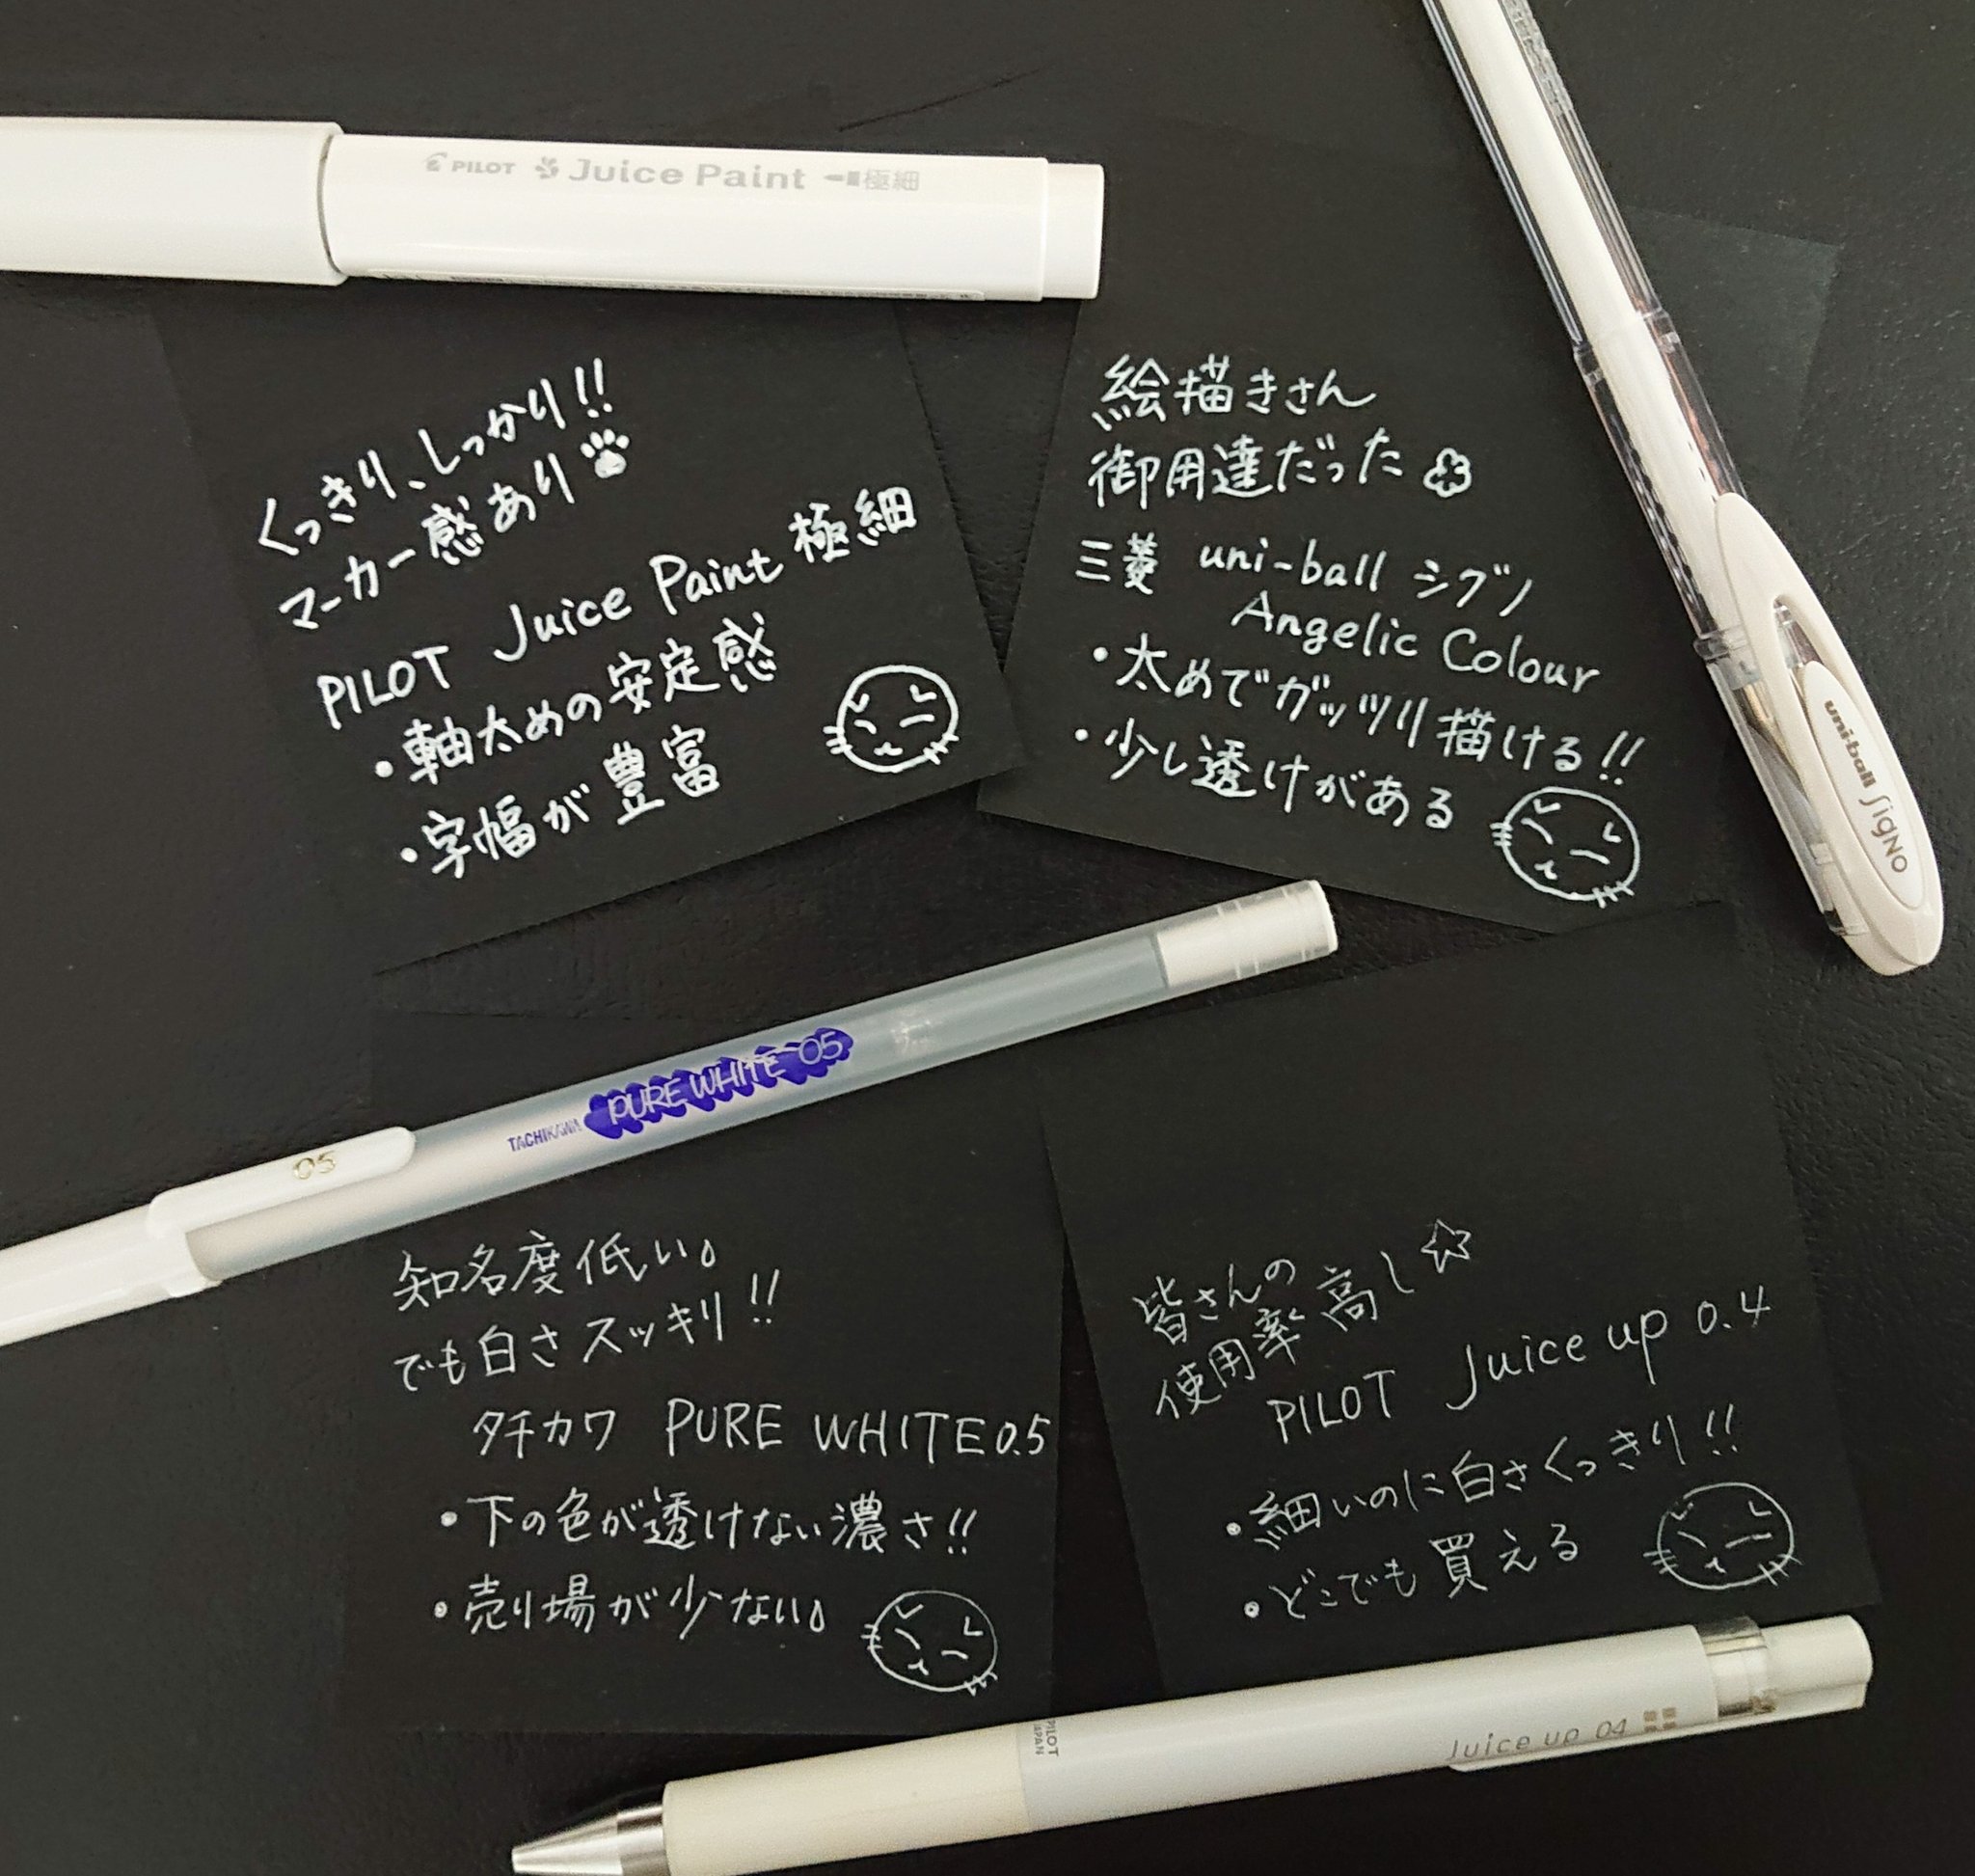 PILOT Juice Paint 極細
くっきり、しっかり!!
マーカー感あり
PILOT Juice Paint 極細
・軸太めの安定感
・字幅が豊富
絵描きさん
御用達だった
三菱 uni-ball シグノ
Angelic Colour
・太めでガッツリ描ける!!
・少し透けがある
uni-ball SigNO
TACHIKAWA PURE WHITE 05
05
知名度低い。
でも白さスッキリ!!
タチカワ PURE WHITE 0.5
・下の色が透けない濃さ!!
・売り場が少ない。
皆さんの
使用率高し☆
PILOT Juice up 0.4
・細いのに白さくっきり!!
・どこでも買える
PILOT
JAPAN
Juice up 04